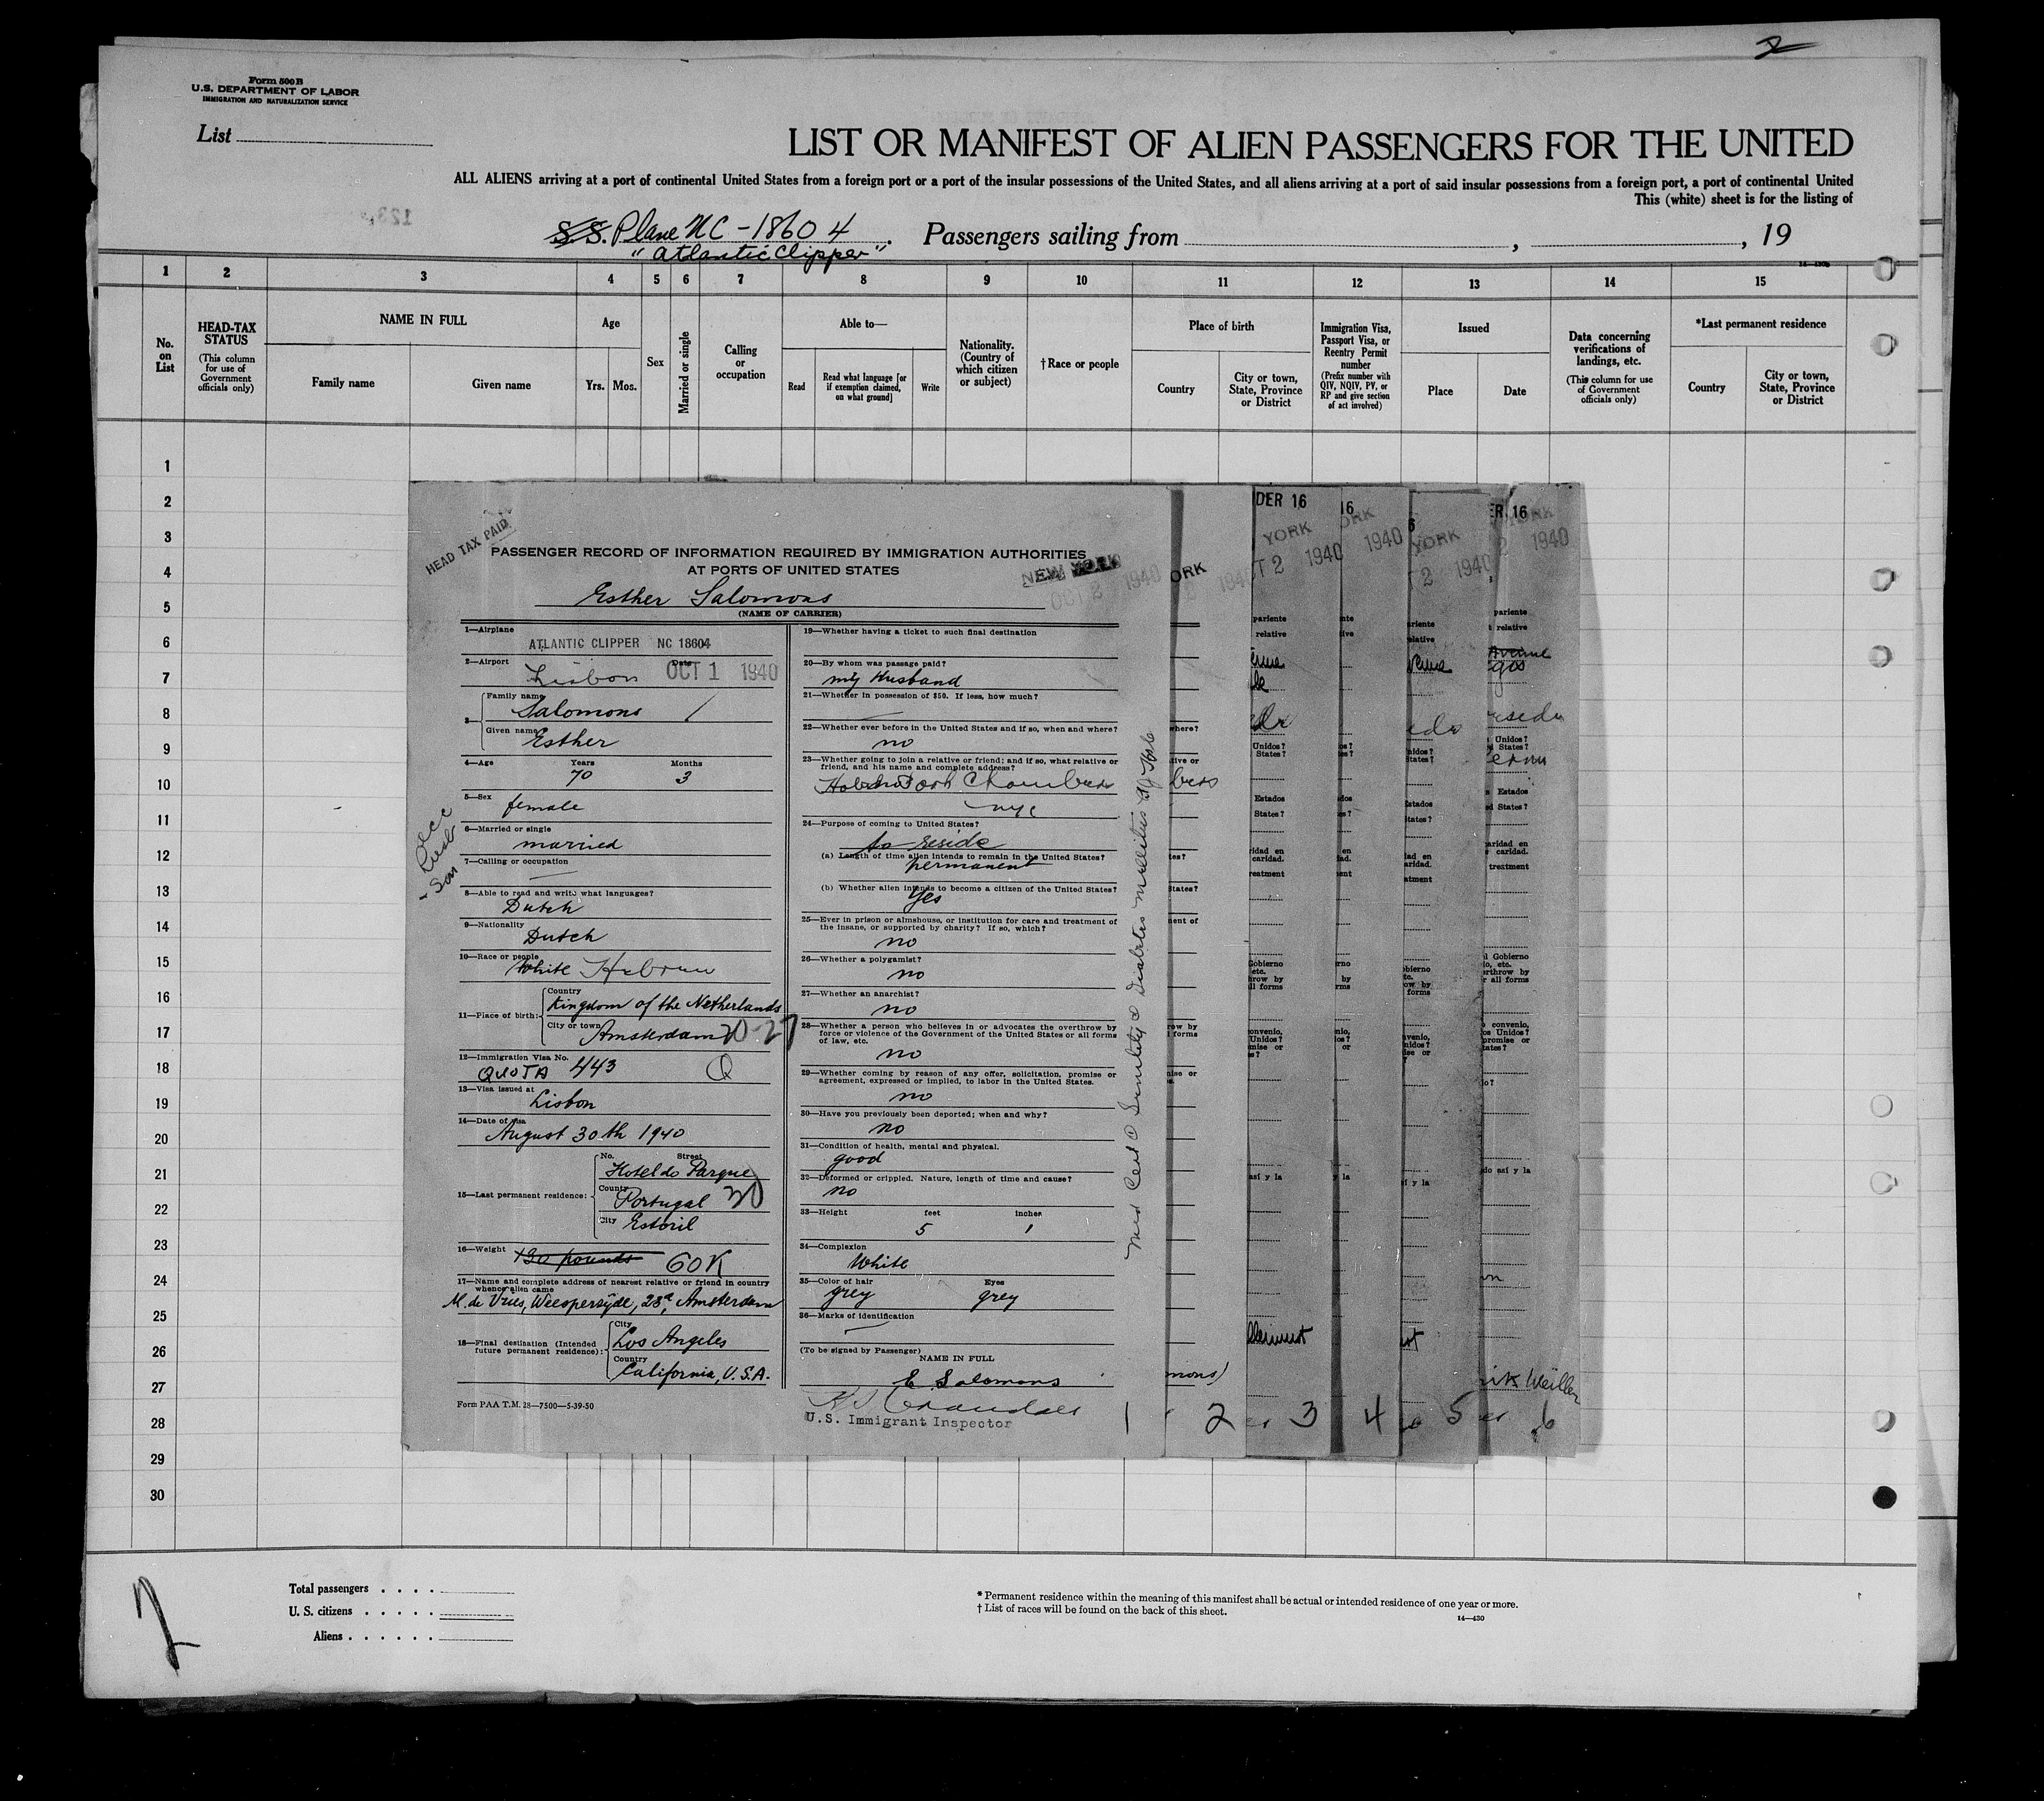 2
Form 500 B
U.S. DEPARTMENT OF LABOR
IMMIGRATION AND NATURALIZATION SERVICE
List
LIST OR MANIFEST OF ALIEN PASSENGERS FOR THE UNITED
ALL ALIENS arriving at a port of continental United States from a foreign port or a port of the insular possessions of the United States, and all aliens arriving at a port of said insular possessions from a foreign port, a port of continental United
This (white) sheet is for the listing of
S.S. Plane NC-18604. Passengers sailing from , , 19
"Atlantic Clipper"
1 2 3 4 5 6 7 8 9 10 11 12 13 14 15
No. on List
HEAD-TAX STATUS
(This column for use of Government officials only)
NAME IN FULL
Family name
Given name
Age
Yrs. Mos.
Sex
Married or single
Calling or occupation
Able to—
Read
Read what language [or if exemption claimed, on what ground]
Write
Nationality. (Country of which citizen or subject)
†Race or people
Place of birth
Country
City or town, State, Province or District
Immigration Visa, Passport Visa, or Reentry Permit number
(Prefix number with QIV, NQIV, PV, or RP and give section of act involved)
Issued
Place
Date
Data concerning verifications of landings, etc.
(This column for use of Government officials only)
*Last permanent residence
Country
City or town, State, Province or District
1
2
3
4
5
6
7
8
9
10
11
12
13
14
15
16
17
18
19
20
21
22
23
24
25
26
27
28
29
30
HEAD TAX PAID
PASSENGER RECORD OF INFORMATION REQUIRED BY IMMIGRATION AUTHORITIES
AT PORTS OF UNITED STATES
NEW YORK
OCT 2 1940
Esther Salomons
(NAME OF CARRIER)
1—Airplane
ATLANTIC CLIPPER NC 18604
2—Airport Date
Lisbon OCT 1 1940
3 Family name
Salomons /
Given name
Esther
4—Age Years Months
70 3
5—Sex
female
6—Married or single
married
7—Calling or occupation
—
8—Able to read and write what languages?
Dutch
9—Nationality
Dutch
10—Race or people
White Hebrew
11—Place of birth: Country
Kingdom of the Netherlands
City or town
Amsterdam 20-27
12—Immigration Visa No.
QUOTA 443 Q
13—Visa issued at
Lisbon
14—Date of visa
August 30th 1940
15—Last permanent residence: No. Street
Hotel do Parque
County
Portugal 20
City
Estoril
16—Weight 130 pounds 60 K
17—Name and complete address of nearest relative or friend in country
whence alien came
M. de Vries, Weesperzyde, 23a, Amsterdam
18—Final destination (Intended future permanent residence): City
Los Angeles
Country
California, U.S.A.
Form PAA T.M. 28—7500—5-39-50
19—Whether having a ticket to such final destination
20—By whom was passage paid?
my Husband
21—Whether in possession of $50. If less, how much?
—
22—Whether ever before in the United States and if so, when and where?
no
23—Whether going to join a relative or friend; and if so, what relative or
friend, and his name and complete address?
Chambers
nyc
24—Purpose of coming to United States?
to reside
(a) Length of time alien intends to remain in the United States?
permanent
(b) Whether alien intends to become a citizen of the United States?
Yes
25—Ever in prison or almshouse, or institution for care and treatment of
the insane, or supported by charity? If so, which?
no
26—Whether a polygamist?
no
27—Whether an anarchist?
no
28—Whether a person who believes in or advocates the overthrow by
force or violence of the Government of the United States or all forms
of law, etc.
no
29—Whether coming by reason of any offer, solicitation, promise or
agreement, expressed or implied, to labor in the United States.
no
30—Have you previously been deported; when and why?
no
31—Condition of health, mental and physical.
good
32—Deformed or crippled. Nature, length of time and cause?
no
33—Height feet inches
5 1
34—Complexion
White
35—Color of hair Eyes
grey grey
36—Marks of identification
—
(To be signed by Passenger)
NAME IN FULL
E Salomons
U.S. Immigrant Inspector
Med Cert Senility & Diabetes mellitus
1 2 3 4 5 6
Total passengers . . . .
U. S. citizens . . . . .
Aliens . . . . . .
* Permanent residence within the meaning of this manifest shall be actual or intended residence of one year or more.
† List of races will be found on the back of this sheet.
14—430
2